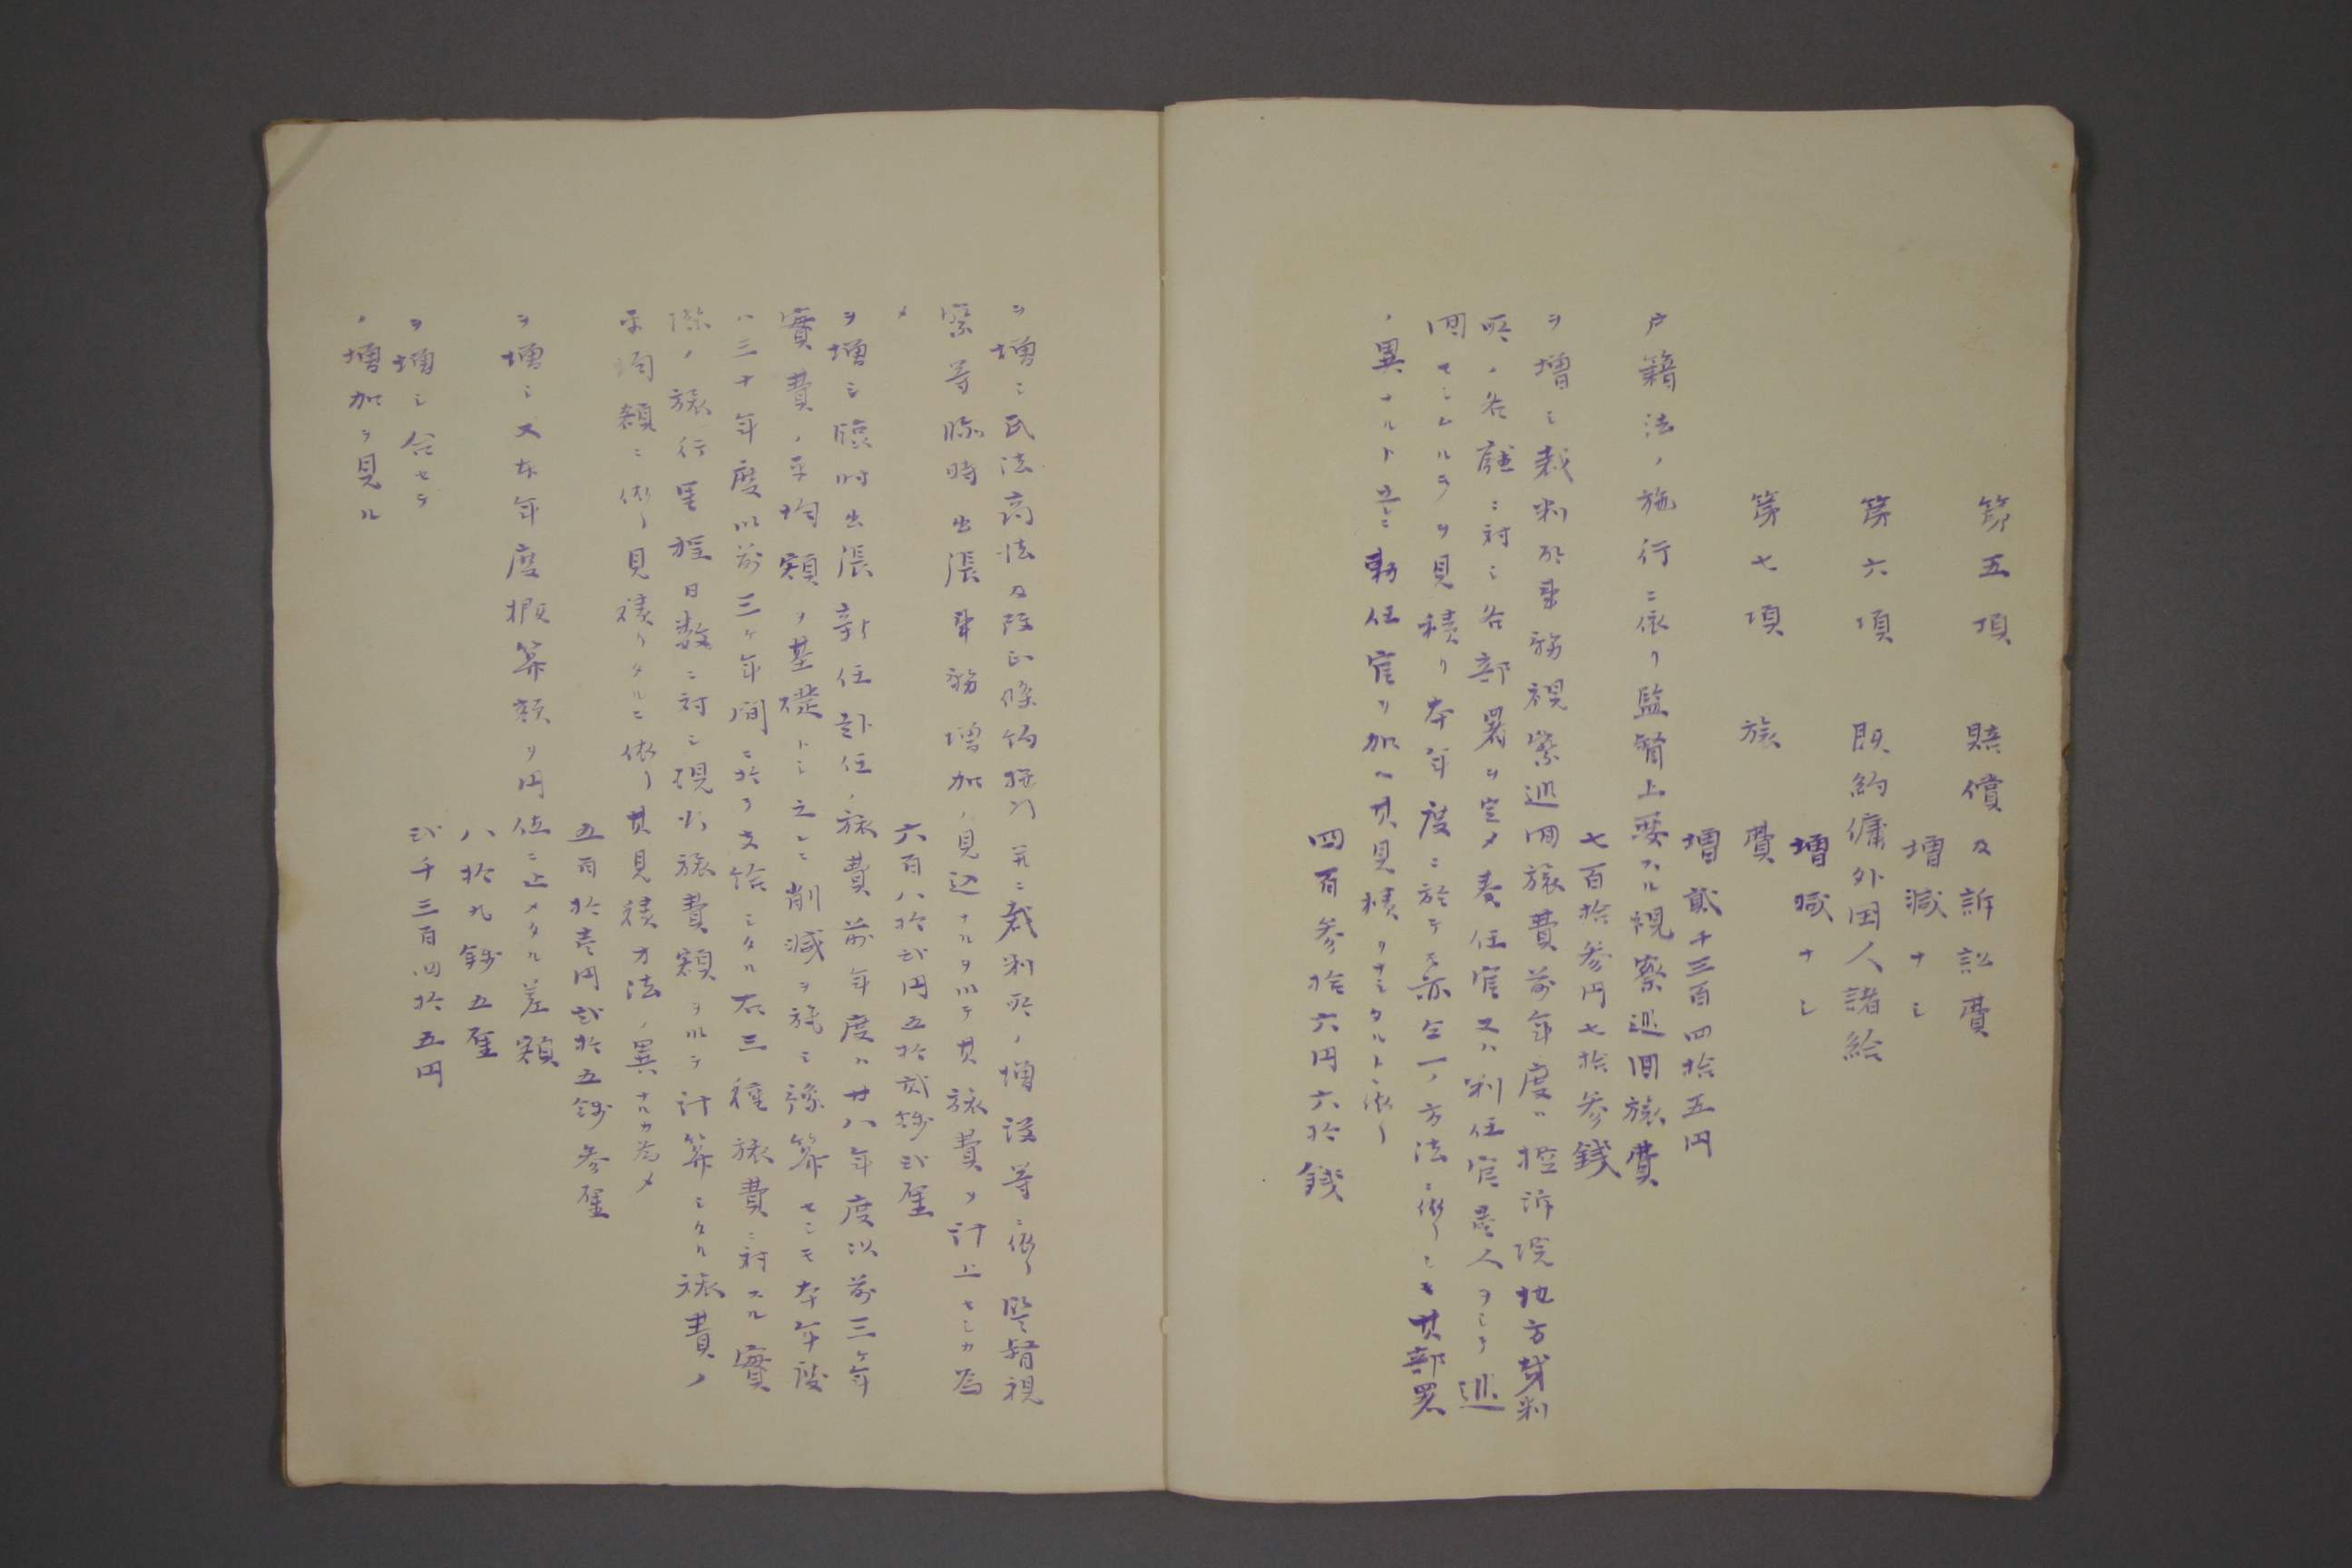 第五項 賠償及訴訟費
増減ナシ
第六項 既約傭外国人諸給
増減ナシ
第七項 旅費
増貳千三百四拾五円
戸籍法ノ施行ニ依リ監督上要スル視察巡回旅費
七百拾参円七拾参銭
ヲ増シ裁判所事務視察巡回旅費前年度ハ控訴院地方裁判
所ノ各庁ニ対シ各部署ヲ定メ奏任官又ハ判任官壱人ヲシテ巡
回セシムルヲ見積リ本年度ニ於テモ亦仝一ノ方法ニ依リシモ其部署
ノ異ナルト並ニ勅任官ヲ加ヘ其見積ヲナシタルト依リ
四百参拾六円六拾銭
ヲ増シ民法商法及改正條約施行并ニ裁判所ノ増設等ニ依リ監督視
察等臨時出張事務増加ノ見込ナルヲ以テ其旅費ヲ計上セシカ為
メ
六百八拾弐円五拾弐銭弐厘
ヲ増シ臨時出張新任赴任ノ旅費前年度ハ廿八年度以前三ヶ年
實費ノ平均額ヲ基礎トシ之レニ削減ヲ施シ豫算セシモ本年度
ハ三十年度以前三ヶ年間ニ於テ支給シタル右三種旅費ニ対スル實
際ノ旅行里程日数ニ対シ現行旅費額ヲ以テ計算シタル旅費ノ
平均額ニ依リ見積リタルニ依リ其見積方法ノ異ナルカ為メ
五百拾壱円弐拾五銭参厘
ヲ増シ又本年度概算額ヲ円位ニ止メタル差額
八拾九銭五厘
ヲ増シ合セテ
弐千三百四拾五円
ノ増加ヲ見ル